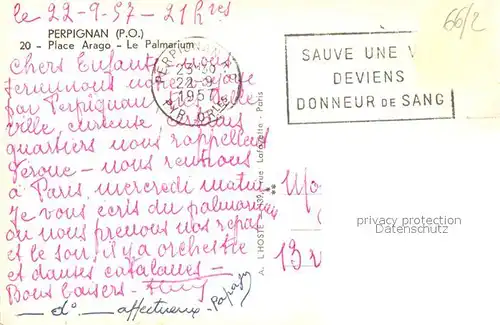 le 22-9-57 - 21h res
66/2
PERPIGNAN (P.O.)
20 - Place Arago - Le Palmarium
Chers Enfants nous
terminons notre voyage
par Perpignan belle
ville curieuse nous
quartiers nous rappellent
Verone - nous rentrons
à Paris mercredi matin
Je vous écris du palmarium
ou nous prenons nos repas
et le soir il y a orchestre
et danses catalanes -
Bons baisers -
d° - affectueux - Papagy
PERPIGNAN
22-9
1957
PYR. ORLES
SAUVE UNE V
DEVIENS
DONNEUR DE SANG
A. L'HOSTE - 139, rue Lafayette - Paris
**
13
webpatrick protection
Datenschutz